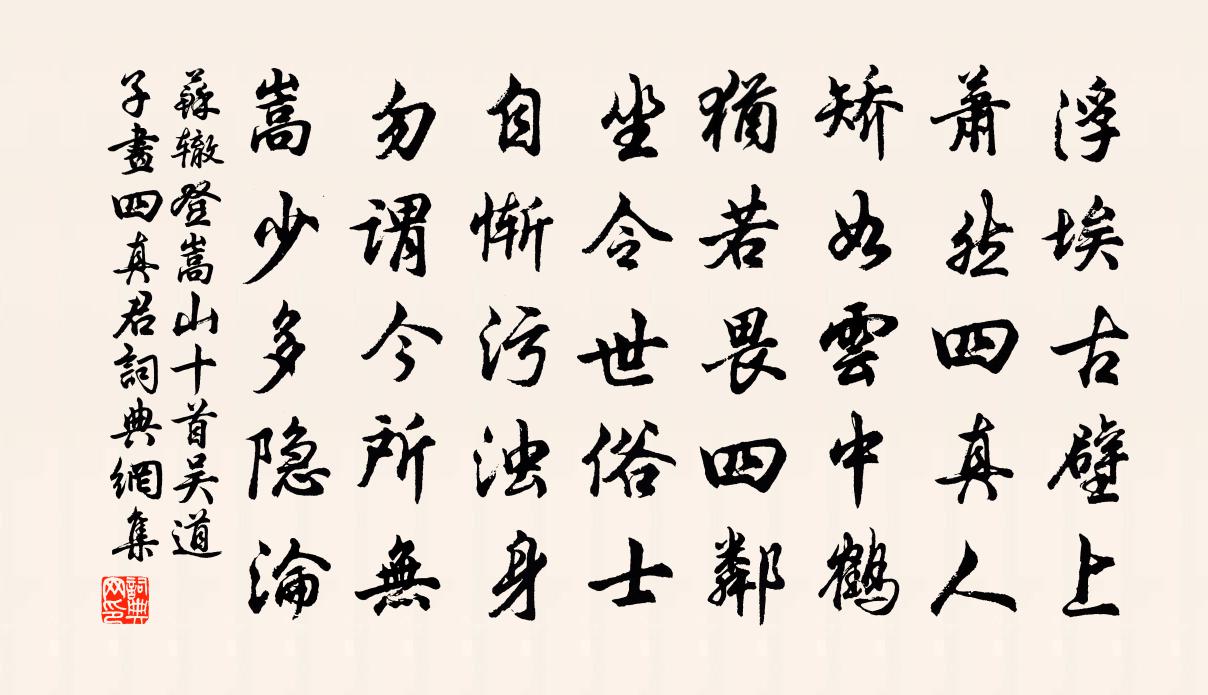 浮埃古壁上
萧然四真人
矫如雲中鹤
猶若畏四鄰
坐令世俗士
自惭污浊身
勿谓今所無
嵩少多隐淪
蘇辙登嵩山十首吴道
子畫四真君詞典網集
詞典网印